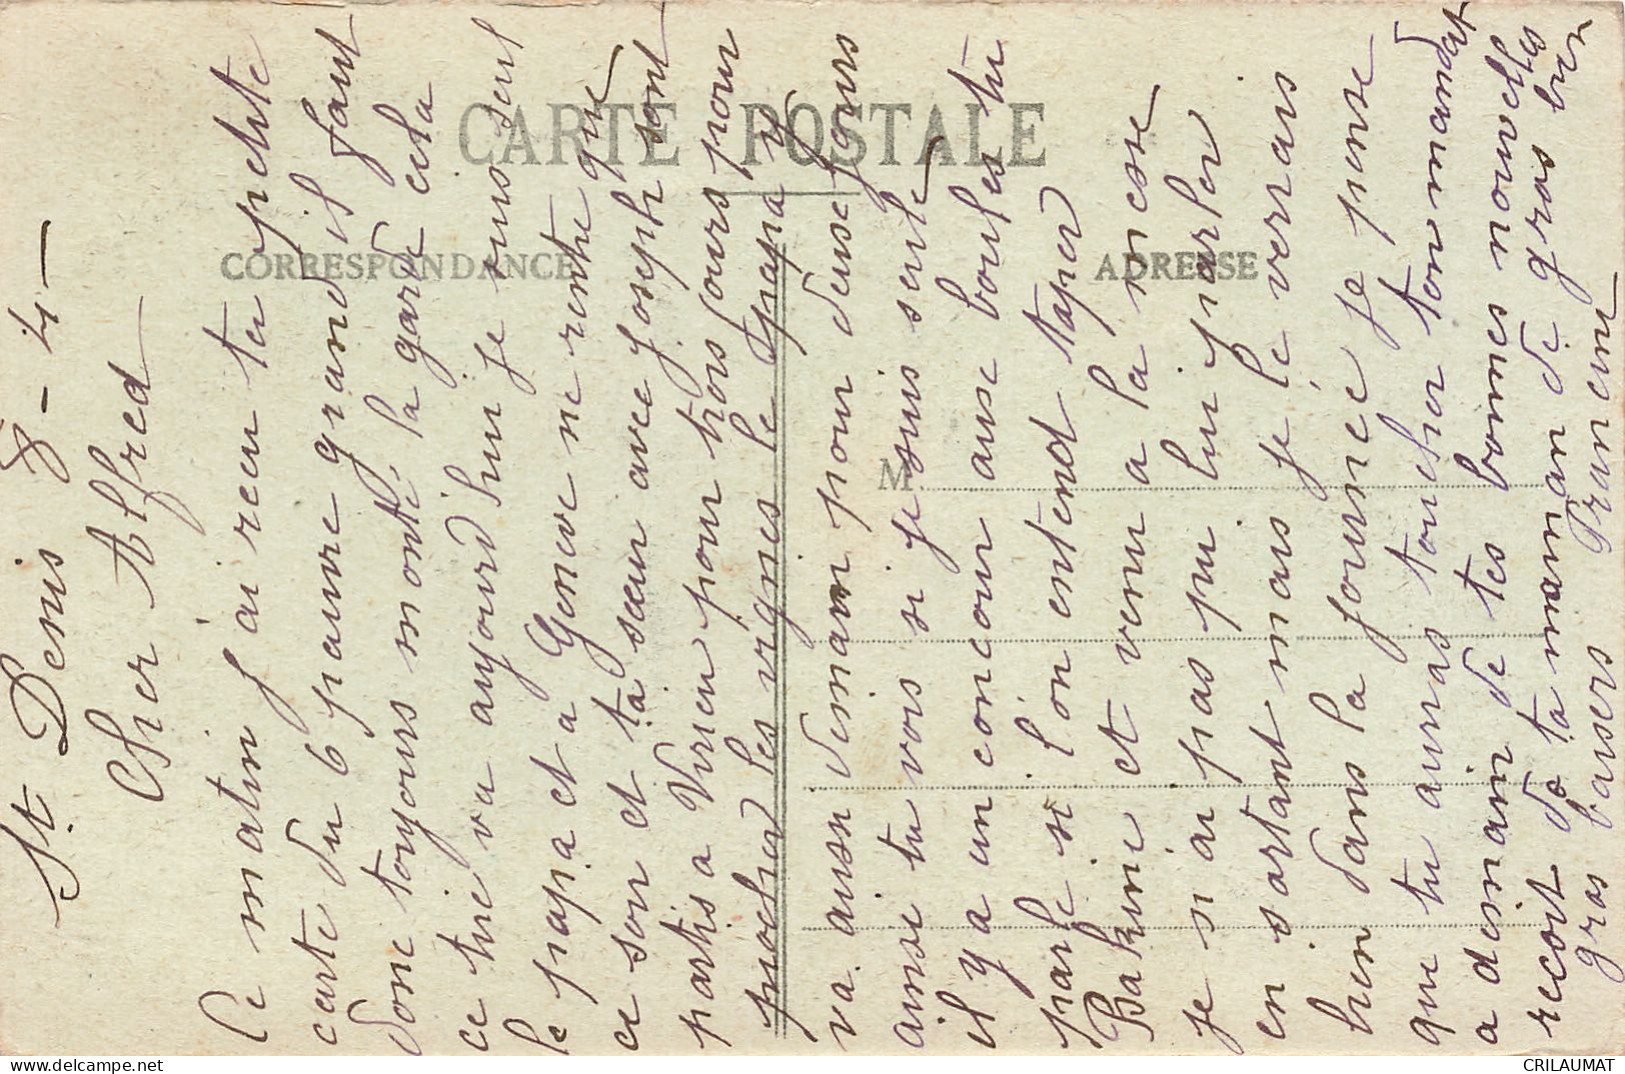 CARTE POSTALE
CORRESPONDANCE
ADRESSE
M
St Denis 8-4-
Cher Alfred
Ce matin j'ai reçu ta petite
carte du 6 pauvre grand il faut
donc toujours monté, la garde cela
ce tire va aujourd'hui je suis seul
le papa et a Genève ne rentre que
ce soir et ta sœur avec Joseph sont
partis a Virieu pour trois jours pour
piocher les vignes le papa y
va aussi demain pour deuse jours
ainsie tu vois si je suis seule
il y a un concour ause boules tu
parle si l'on entend taper
Bakine et venu a la messe
je n'ai pas pu lui parler
en sortant mais je le verrais
bien dans la journée je pense
que tu auras toucher ton mandat
a demain de tes bonnes nouvelles
recoit de ta maman de gras bien
gras baisers Francine
CRILAUMAT